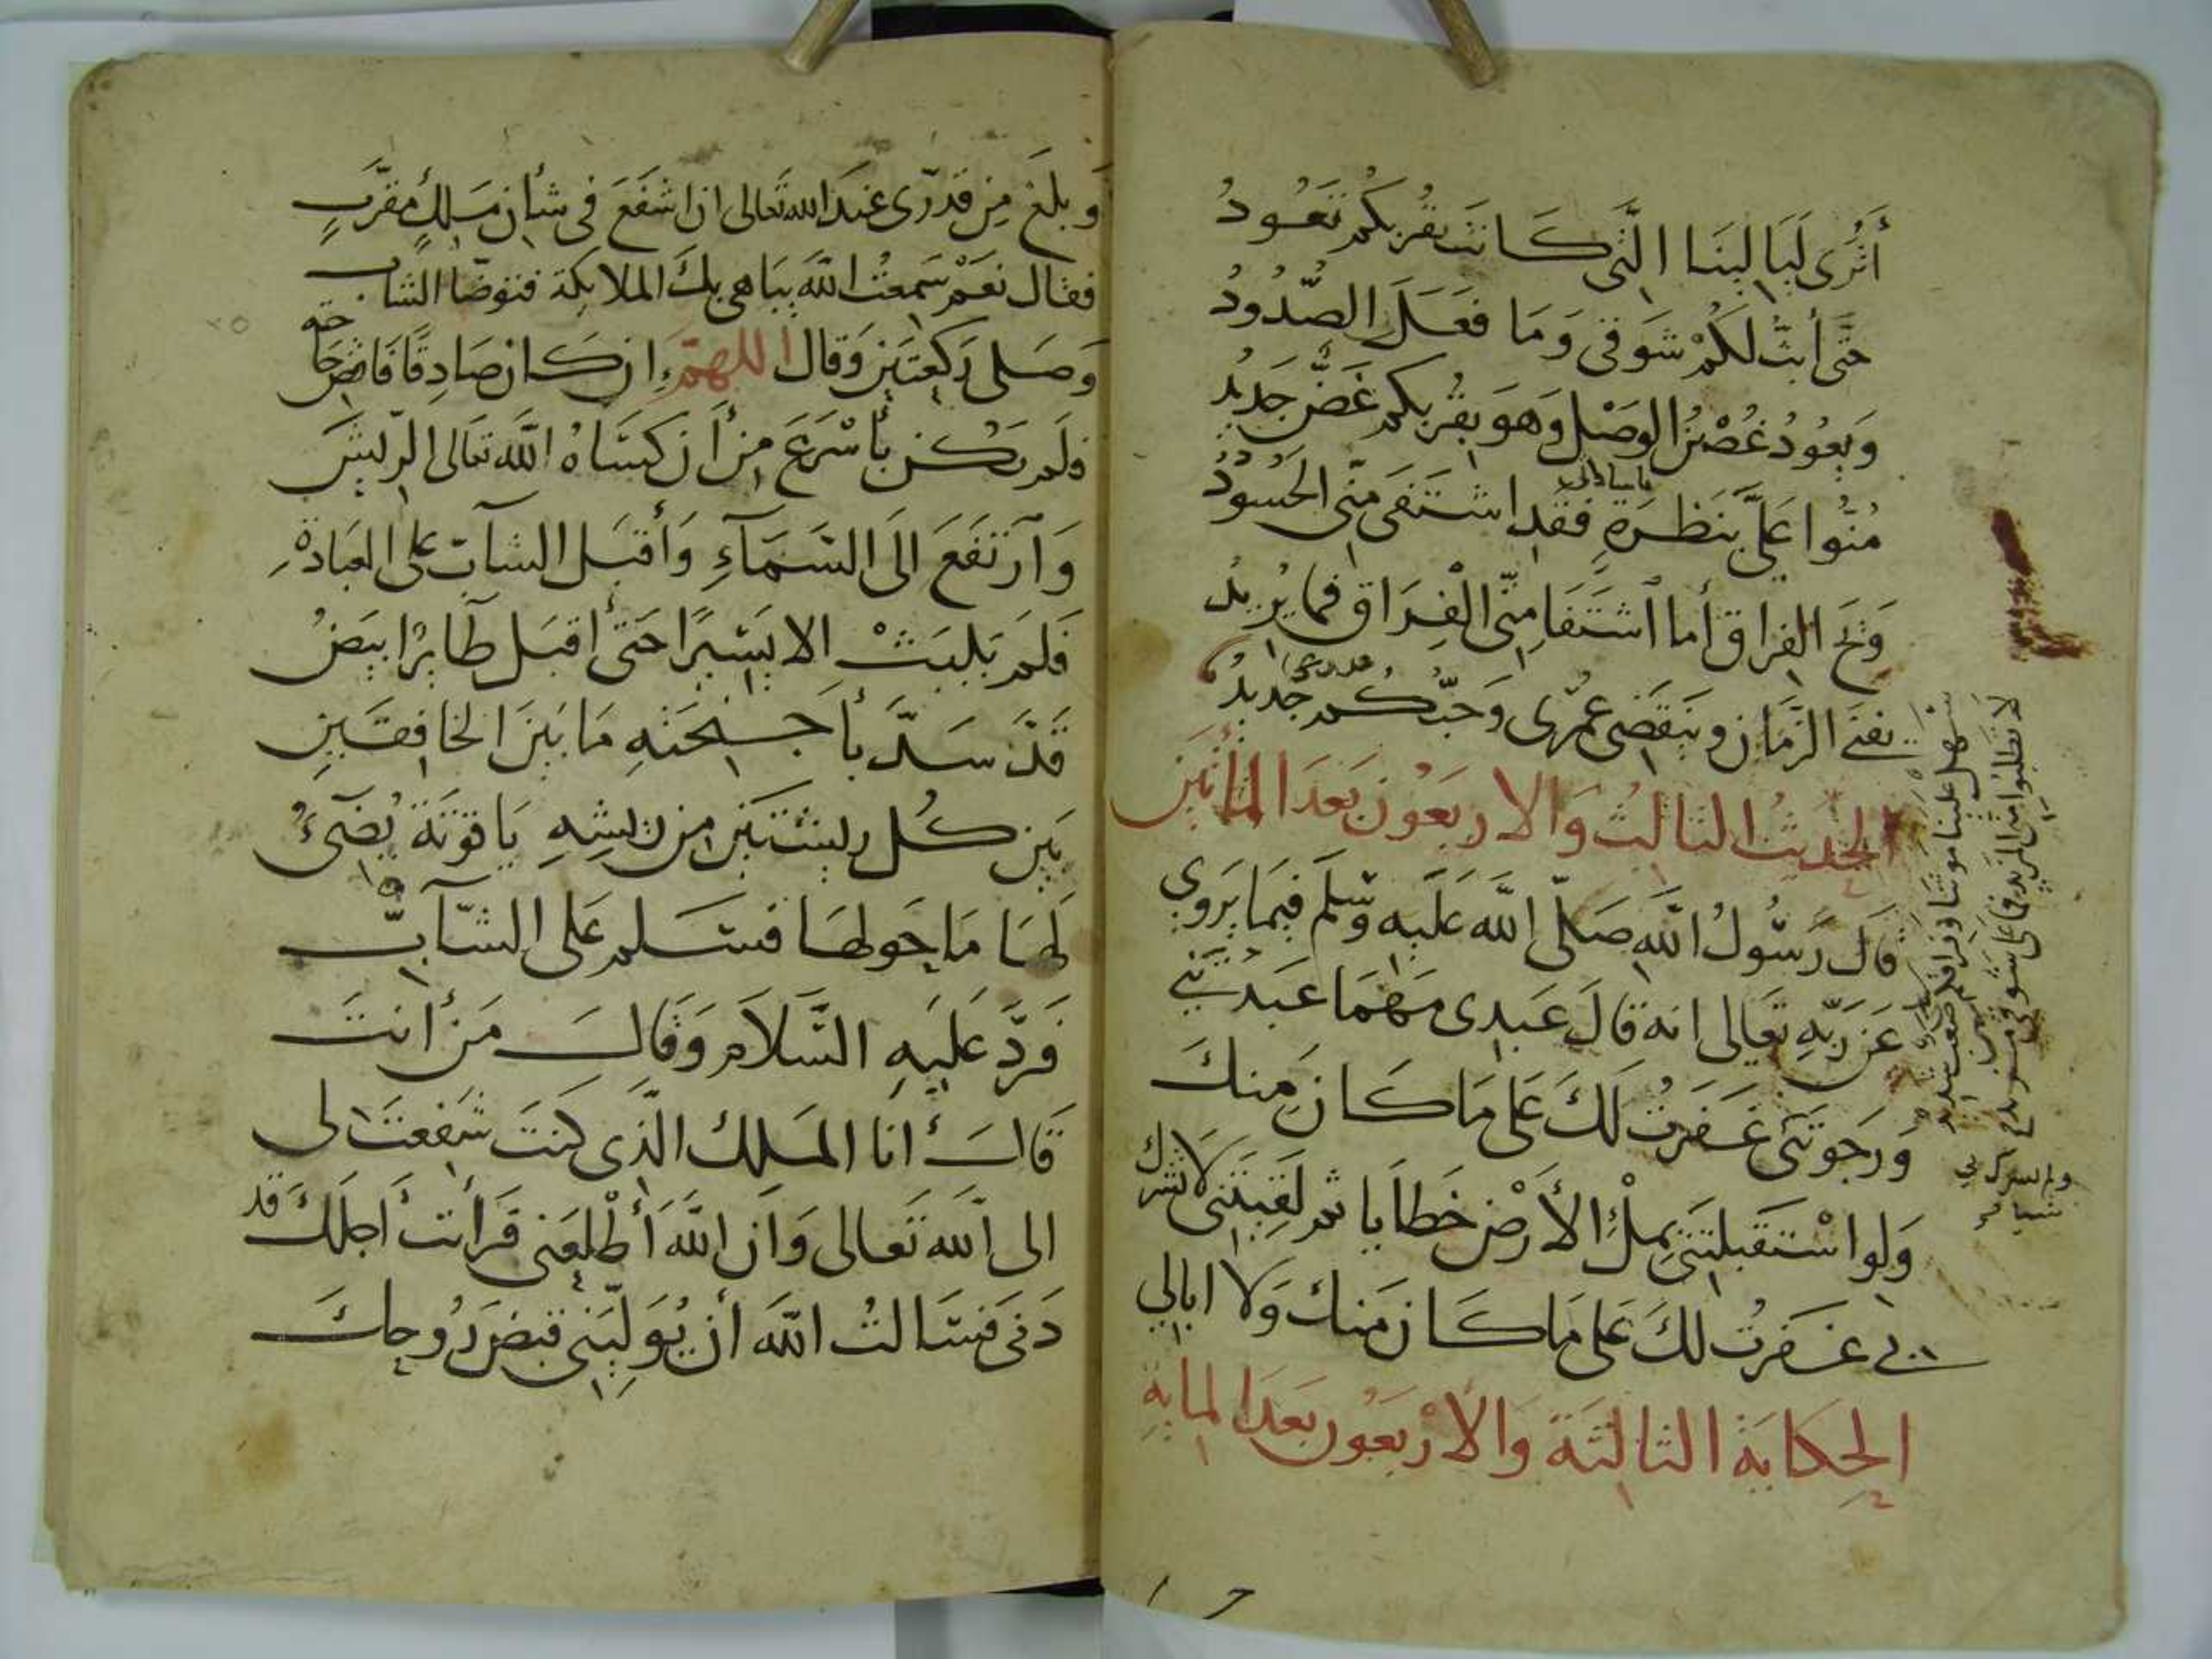 أترى ليالينا التي كانت بقربكم تعود
حتى أبث لكم شوقي وما فعل الصدود
ويعود غصن الوصل وهو بقربكم غض جديد
منوا علي بنظرة فقد اشتفى مني الحسود
ويح الفراق أما اشتفا مني الفراق فما يريد
يفنى الزمان وينقضي عمري وحبكم جديد
الحديث الثالث والاربعون بعد المأتين
قال رسول الله صلى الله عليه وسلم فيما يروي
عن ربه تعالى انه قال عبدي مهما عبدتني
ورجوتني غفرت لك على ما كان منك
ولو استقبلتني بملئ الأرض خطايا ثم لقيتني لا تشرك
بي غفرت لك على ما كان منك ولا ابالي
الحكاية الثالثة والأربعون بعد الماية
لا تطلبوا مني المزيد فما على شوقي مزيد
سهل علينا موتنا وفراقكم صعب شديد
ولم تشرك بي
شيا
وبلغ من قدري عند الله تعالى ان اشفع في شأن ملك مقرب
فقال نعم سمعت الله يباهي بك الملايكة فتوضا الشاب
وصلى ركعتين وقال اللهم ان كان صادقا فاقض حاجته
فلم يكن بأسرع من أن كساه الله تعالى الريش
وارتفع الى السماء وأقبل الشاب على العبادة
فلم يلبث الا يسيرا حتى أقبل طاير ابيض
قد سد بأجنحته ما بين الخافقين
بين كل ريشتين من ريشه ياقوتة يضيء
لها ما حولها فسلم على الشاب
فرد عليه السلام وقال من أنت
قال أنا الملك الذي كنت شفعت لي
الى الله تعالى وان الله أطلعني قرأت أجلك قد
دنى فسالت الله أن يوليني قبض روحك